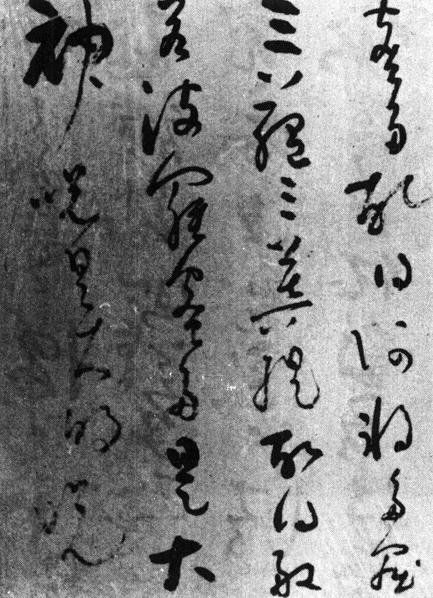 蜜多故得阿耨多羅
三藐三菩提故知般
若波羅蜜多是大
神呪是大明呪